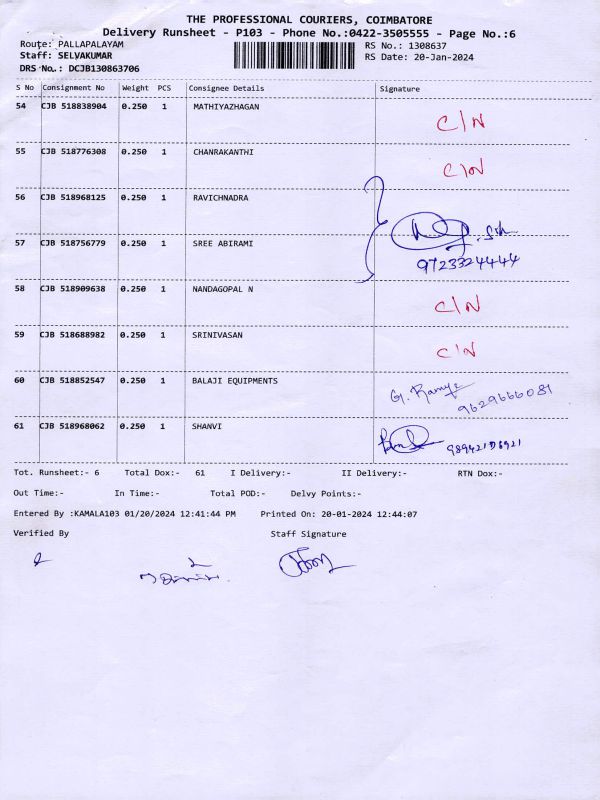 THE PROFESSIONAL COURIERS, COIMBATORE
Delivery Runsheet - P103 - Phone No.:0422-3505555 - Page No.:6
Route: PALLAPALAYAM
RS No.: 1308637
Staff: SELVAKUMAR
RS Date: 20-Jan-2024
DRS No.: DCJB130863706
S No Consignment No Weight PCS Consignee Details Signature
54 CJB 518838904 0.250 1 MATHIYAZHAGAN C/N
55 CJB 518776308 0.250 1 CHANRAKANTHI C/N
56 CJB 518968125 0.250 1 RAVICHNADRA
57 CJB 518756779 0.250 1 SREE ABIRAMI
9723324444
58 CJB 518909638 0.250 1 NANDAGOPAL N C/N
59 CJB 518688982 0.250 1 SRINIVASAN C/N
60 CJB 518852547 0.250 1 BALAJI EQUIPMENTS G. Ramya
9629666081
61 CJB 518968062 0.250 1 SHANVI
Tot. Runsheet:- 6 Total Dox:- 61 I Delivery:- II Delivery:- RTN Dox:-
Out Time:- In Time:- Total POD:- Delvy Points:-
Entered By :KAMALA103 01/20/2024 12:41:44 PM Printed On: 20-01-2024 12:44:07
Verified By Staff Signature